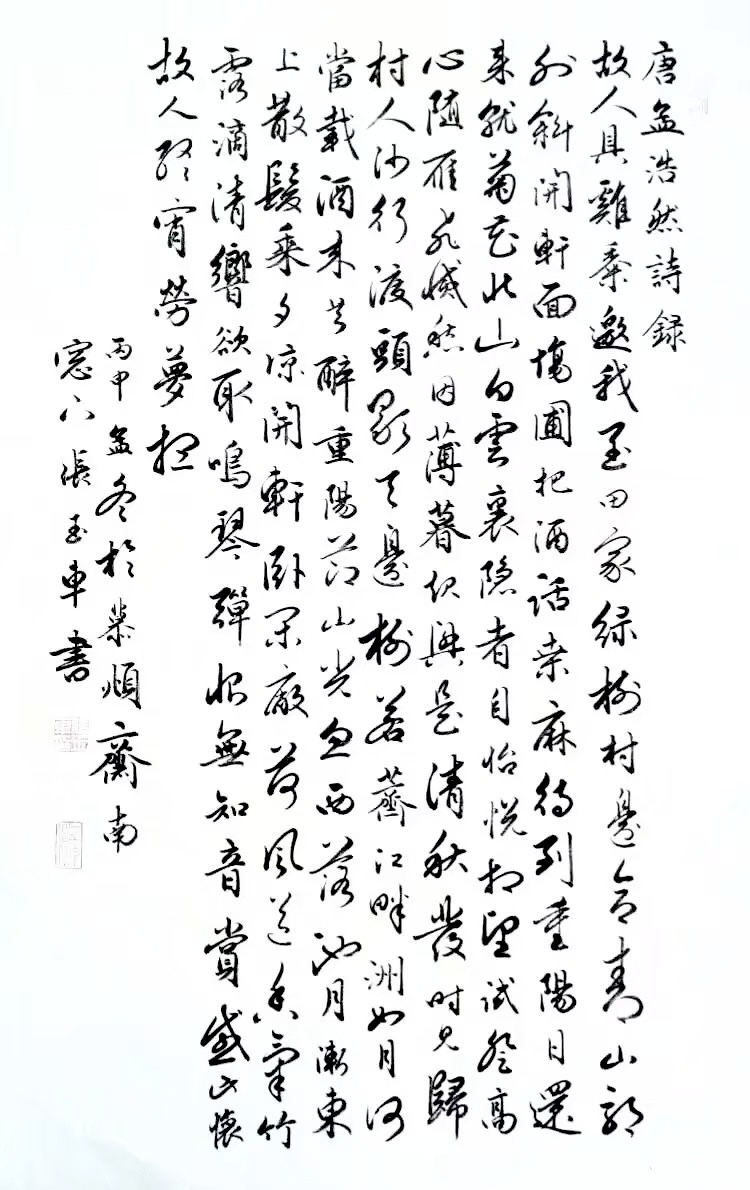 唐孟浩然詩録
故人具雞黍邀我至田家緑樹村邊合青山郭
外斜開軒面場圃把酒話桒麻待到重陽日還
来就菊花北山白雲裏隐者自怡悦相望試登高
心随雁飛滅愁因薄暮起興是清秋發時見歸
村人沙行渡頭歇天邊樹若薺江畔洲如月何
當載酒来共醉重陽節山光忽西落池月漸東
上散髮乗夕涼開軒卧閑敞荷風送香氣竹
露滴清響欲取鳴琴彈恨無知音賞感此懷
故人終宵勞夢想
丙申孟冬於慕順齋南
窓下張玉車書